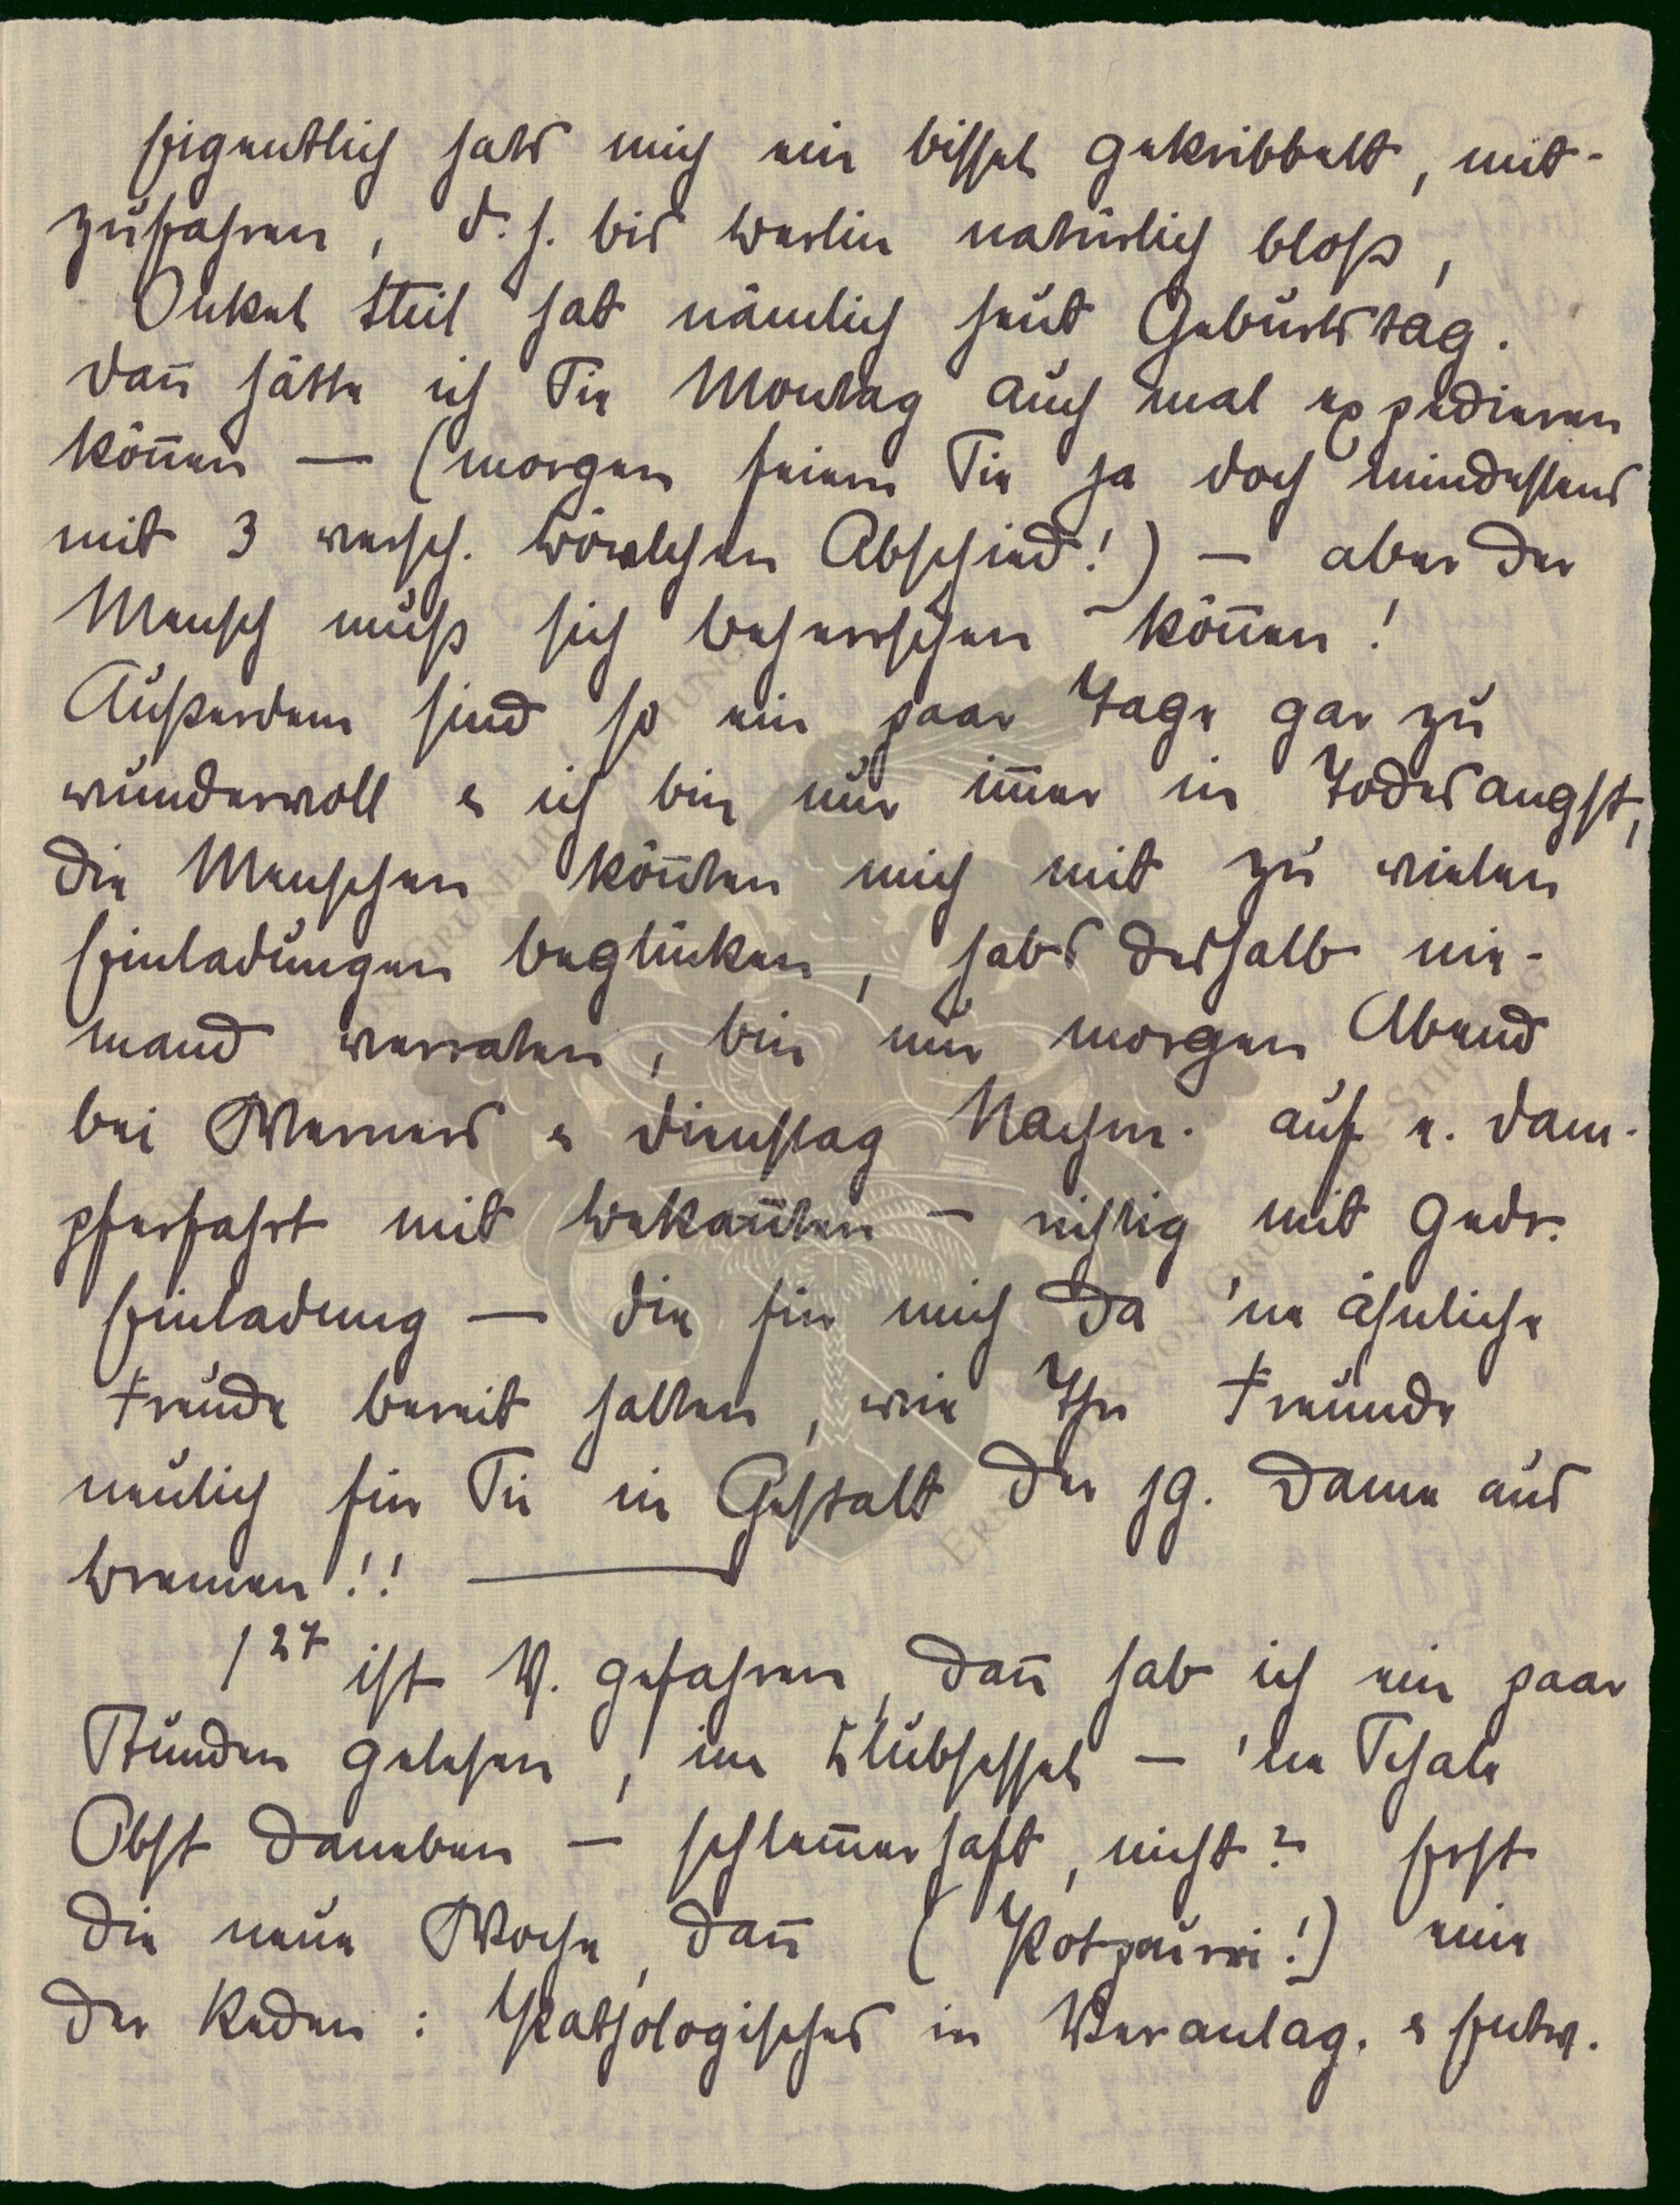 Eigentlich hats mich ein bissel gekribbelt, mit-
zufahren, d. h. bis Berlin natürlich bloss,
Onkel Stil hat nämlich heut Geburtstag.
Dan̄ hätte ich Sie Montag auch mal expedieren
kön̄en — (morgen feiern Sie ja doch mindestens
mit 3 versch. Bowlchen Abschied!) — aber der
Mensch muss sich beherrschen kön̄en!
Außerdem sind so ein paar Tage gar zu
wundervoll & ich bin nur im̄er in Todesangst,
die Menschen kön̄ten mich mit zu vielen
Einladungen beglücken, habs deshalb nie-
mand verraten, bin nur morgen Abend
bei Werners & Dienstag Nachm. auf e. Dam-
pferfahrt mit Bekan̄ten — richtig mit gedr.
Einladung — die für mich da 'ne ähnliche
Freude bereit halten, wie Ihr Freunde
neulich für Sie in Gestalt der jg. Dame aus
Bremen!! —
1²⁷ ist V. gefahren, dan̄ hab ich ein paar
Stunden gelesen, im Klubsessel — 'ne Schale
Obst daneben — schlem̄erhaft, nicht? Erst
die neue Woche, dan̄ (Potpourri!) eine
der Reden: Pathologisches in Veranlag. & Entw.